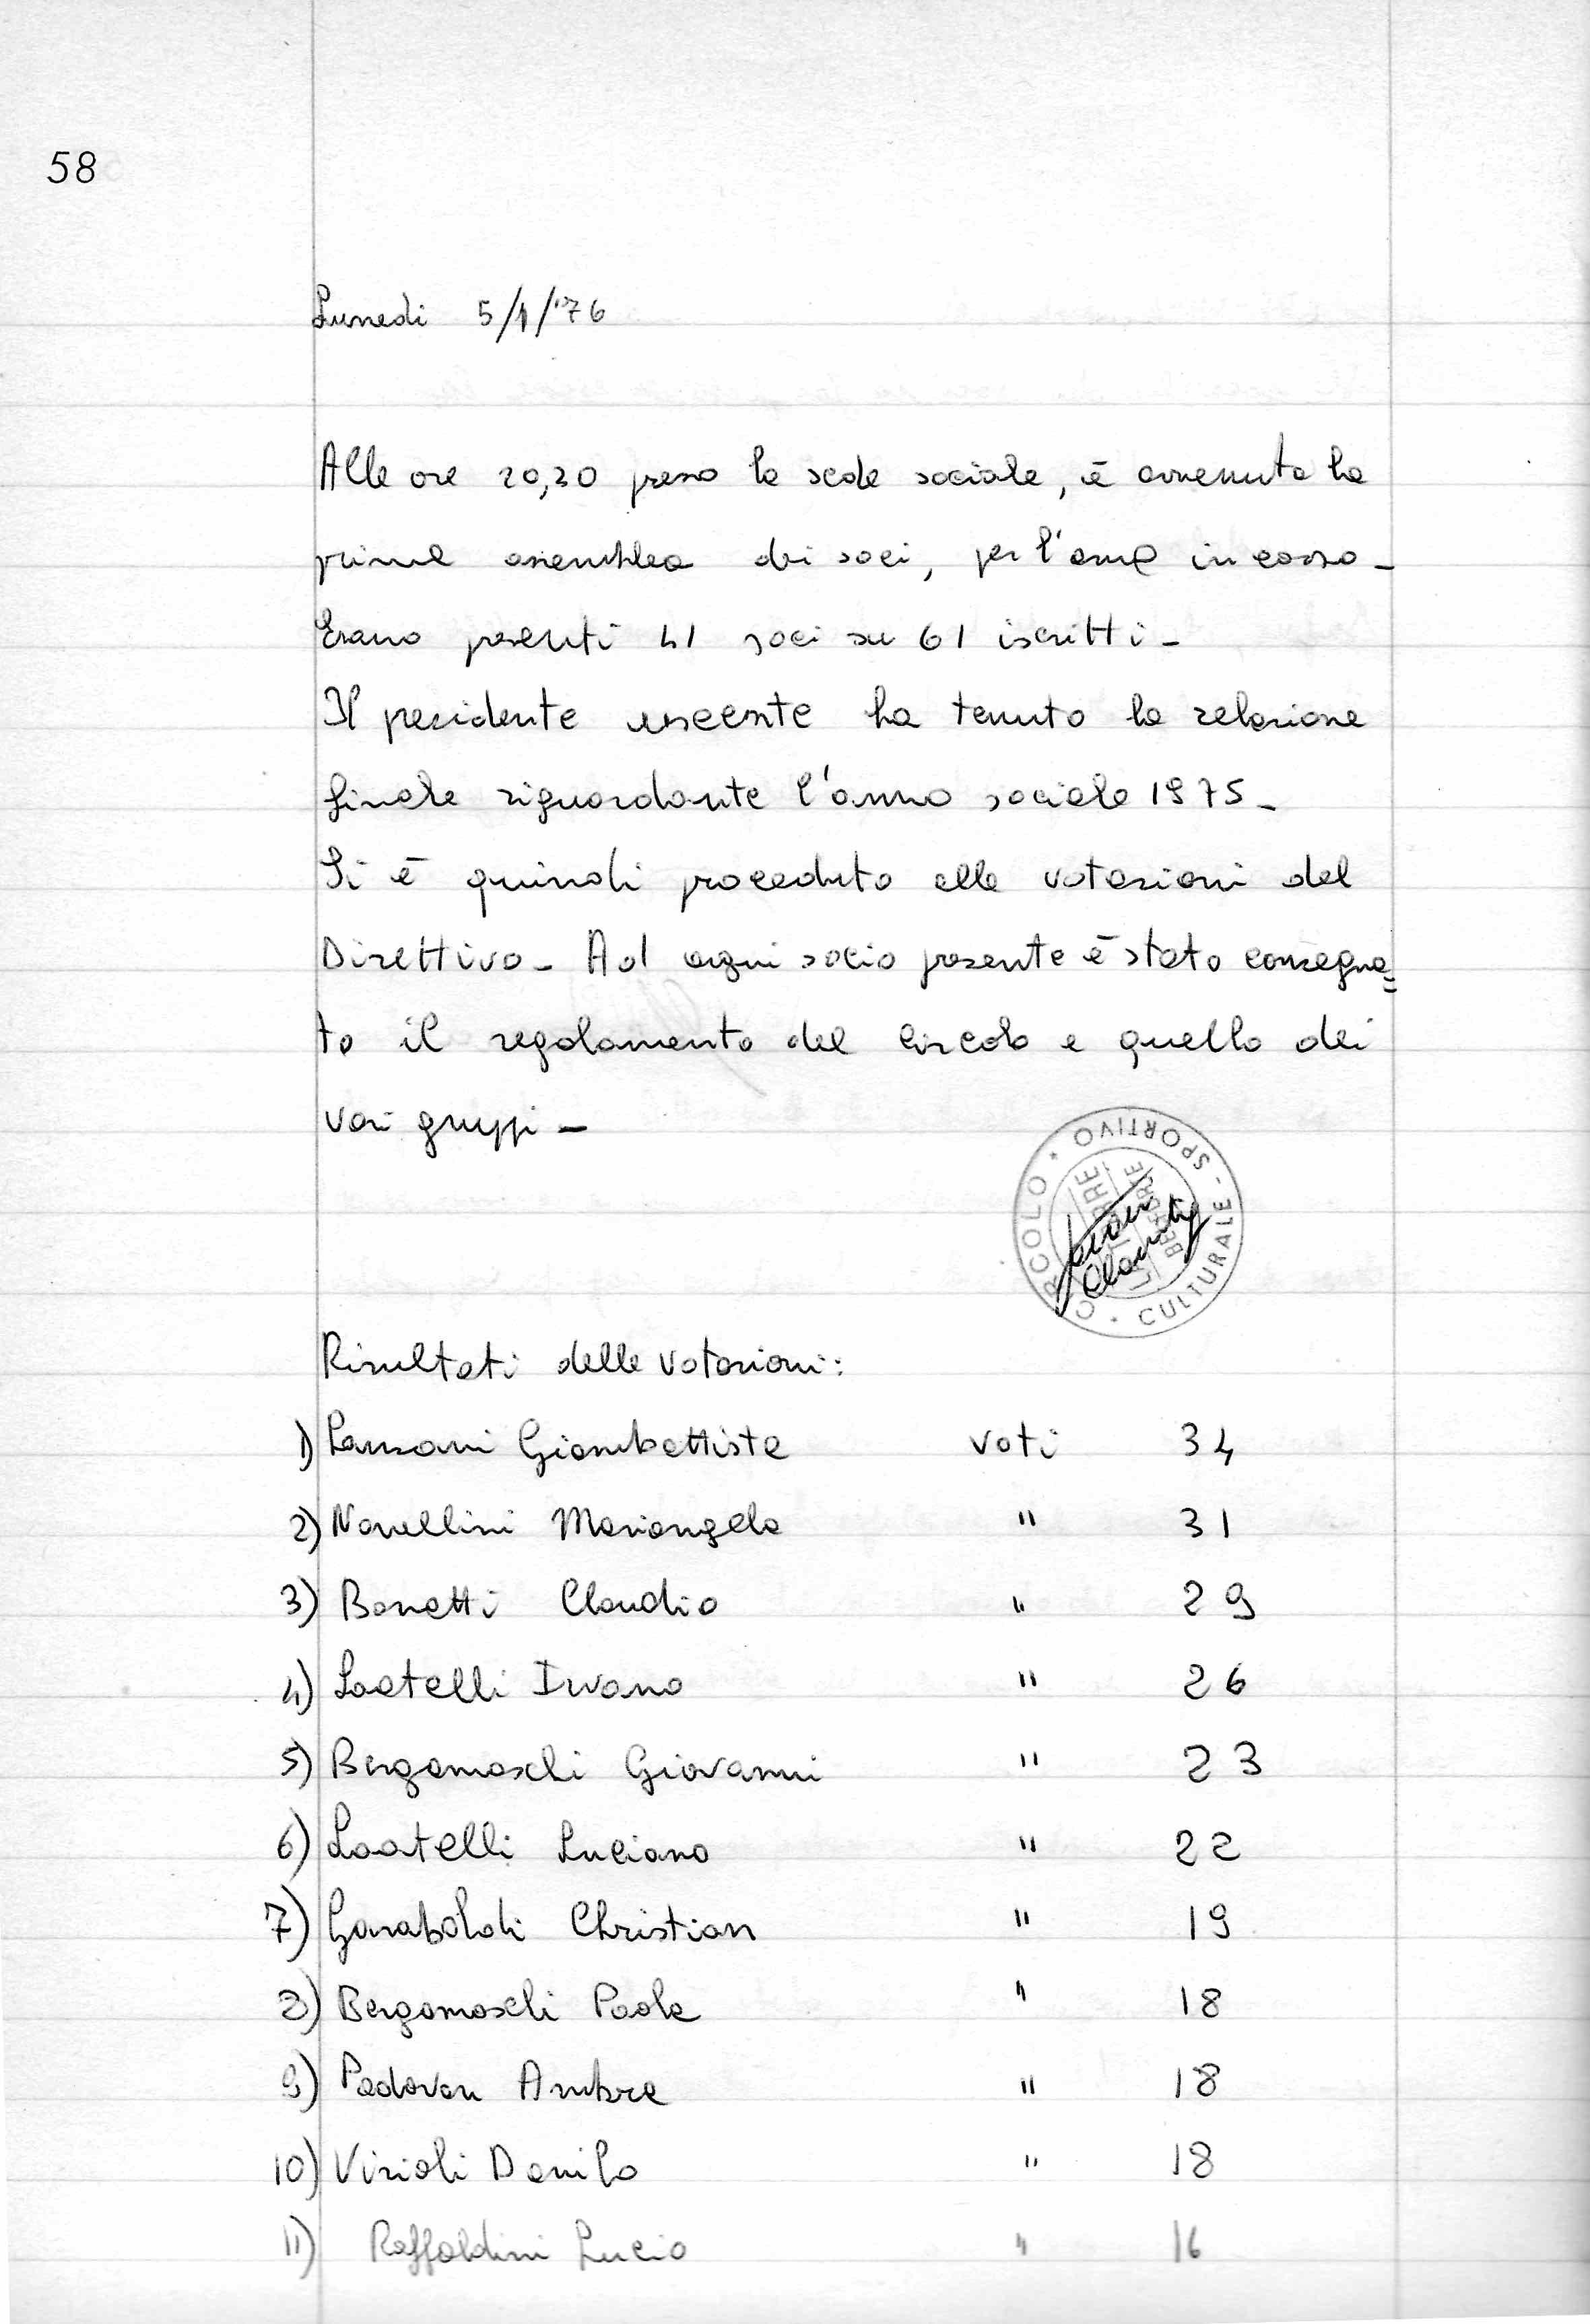 58
Lunedi 5/1/'76
Alle ore 20,30 presso la sede sociale, è avvenuta la
prima assemblea dei soci, per l'anno in corso -
Erano presenti 41 soci su 61 iscritti -
Il presidente uscente ha tenuto la relazione
finale riguardante l'anno sociale 1975 -
Si è quindi proceduto alle votazioni del
Direttivo - Ad ogni socio presente è stato consegna=
to il regolamento del Circolo e quello dei
vari gruppi -
CIRCOLO * SPORTIVO - CULTURALE *
Risultati delle votazioni:
1) Lanzoni Giambattista voti 34
2) Novellini Mariangela " 31
3) Bonetti Claudio " 29
4) Locatelli Ivano " 26
5) Bergamaschi Giovanni " 23
6) Locatelli Luciano " 22
7) Garaboldi Christian " 19
8) Bergamaschi Paola " 18
9) Padovan Ambra " 18
10) Vizioli Danilo " 18
11) Raffaldini Lucio " 16